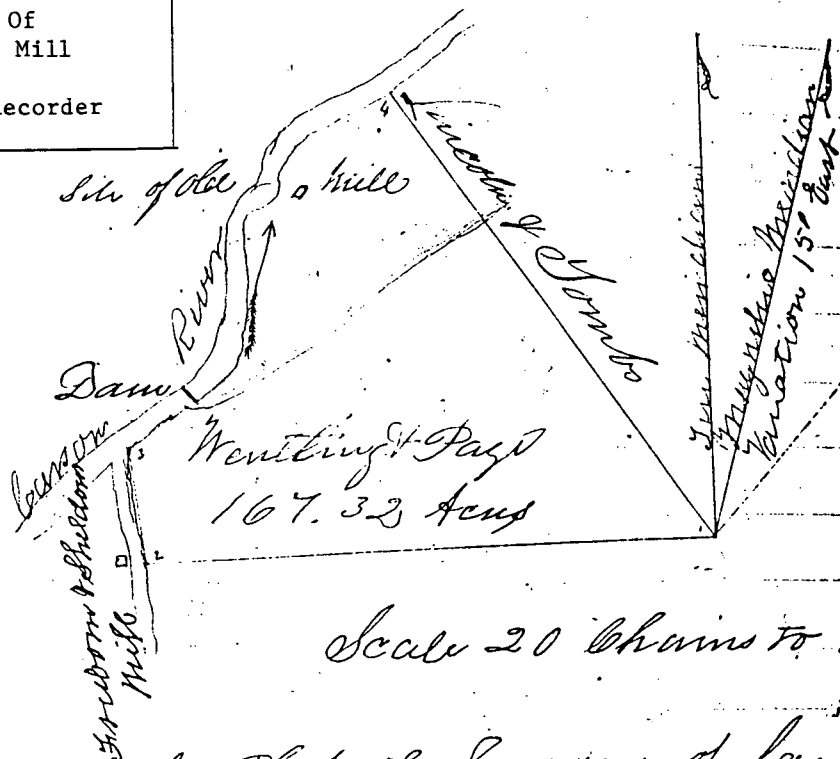 Of
Mill
Recorder
Site of Old Mill
River
Dam
Carson
Wentling & Page
167.32 Acres
Lincoln & Tombs
True Meridian
Magnetic Meridian
Variation 15° East
4
3
2
1
& Sheldon
Mill
Scale 20 Chains to
of